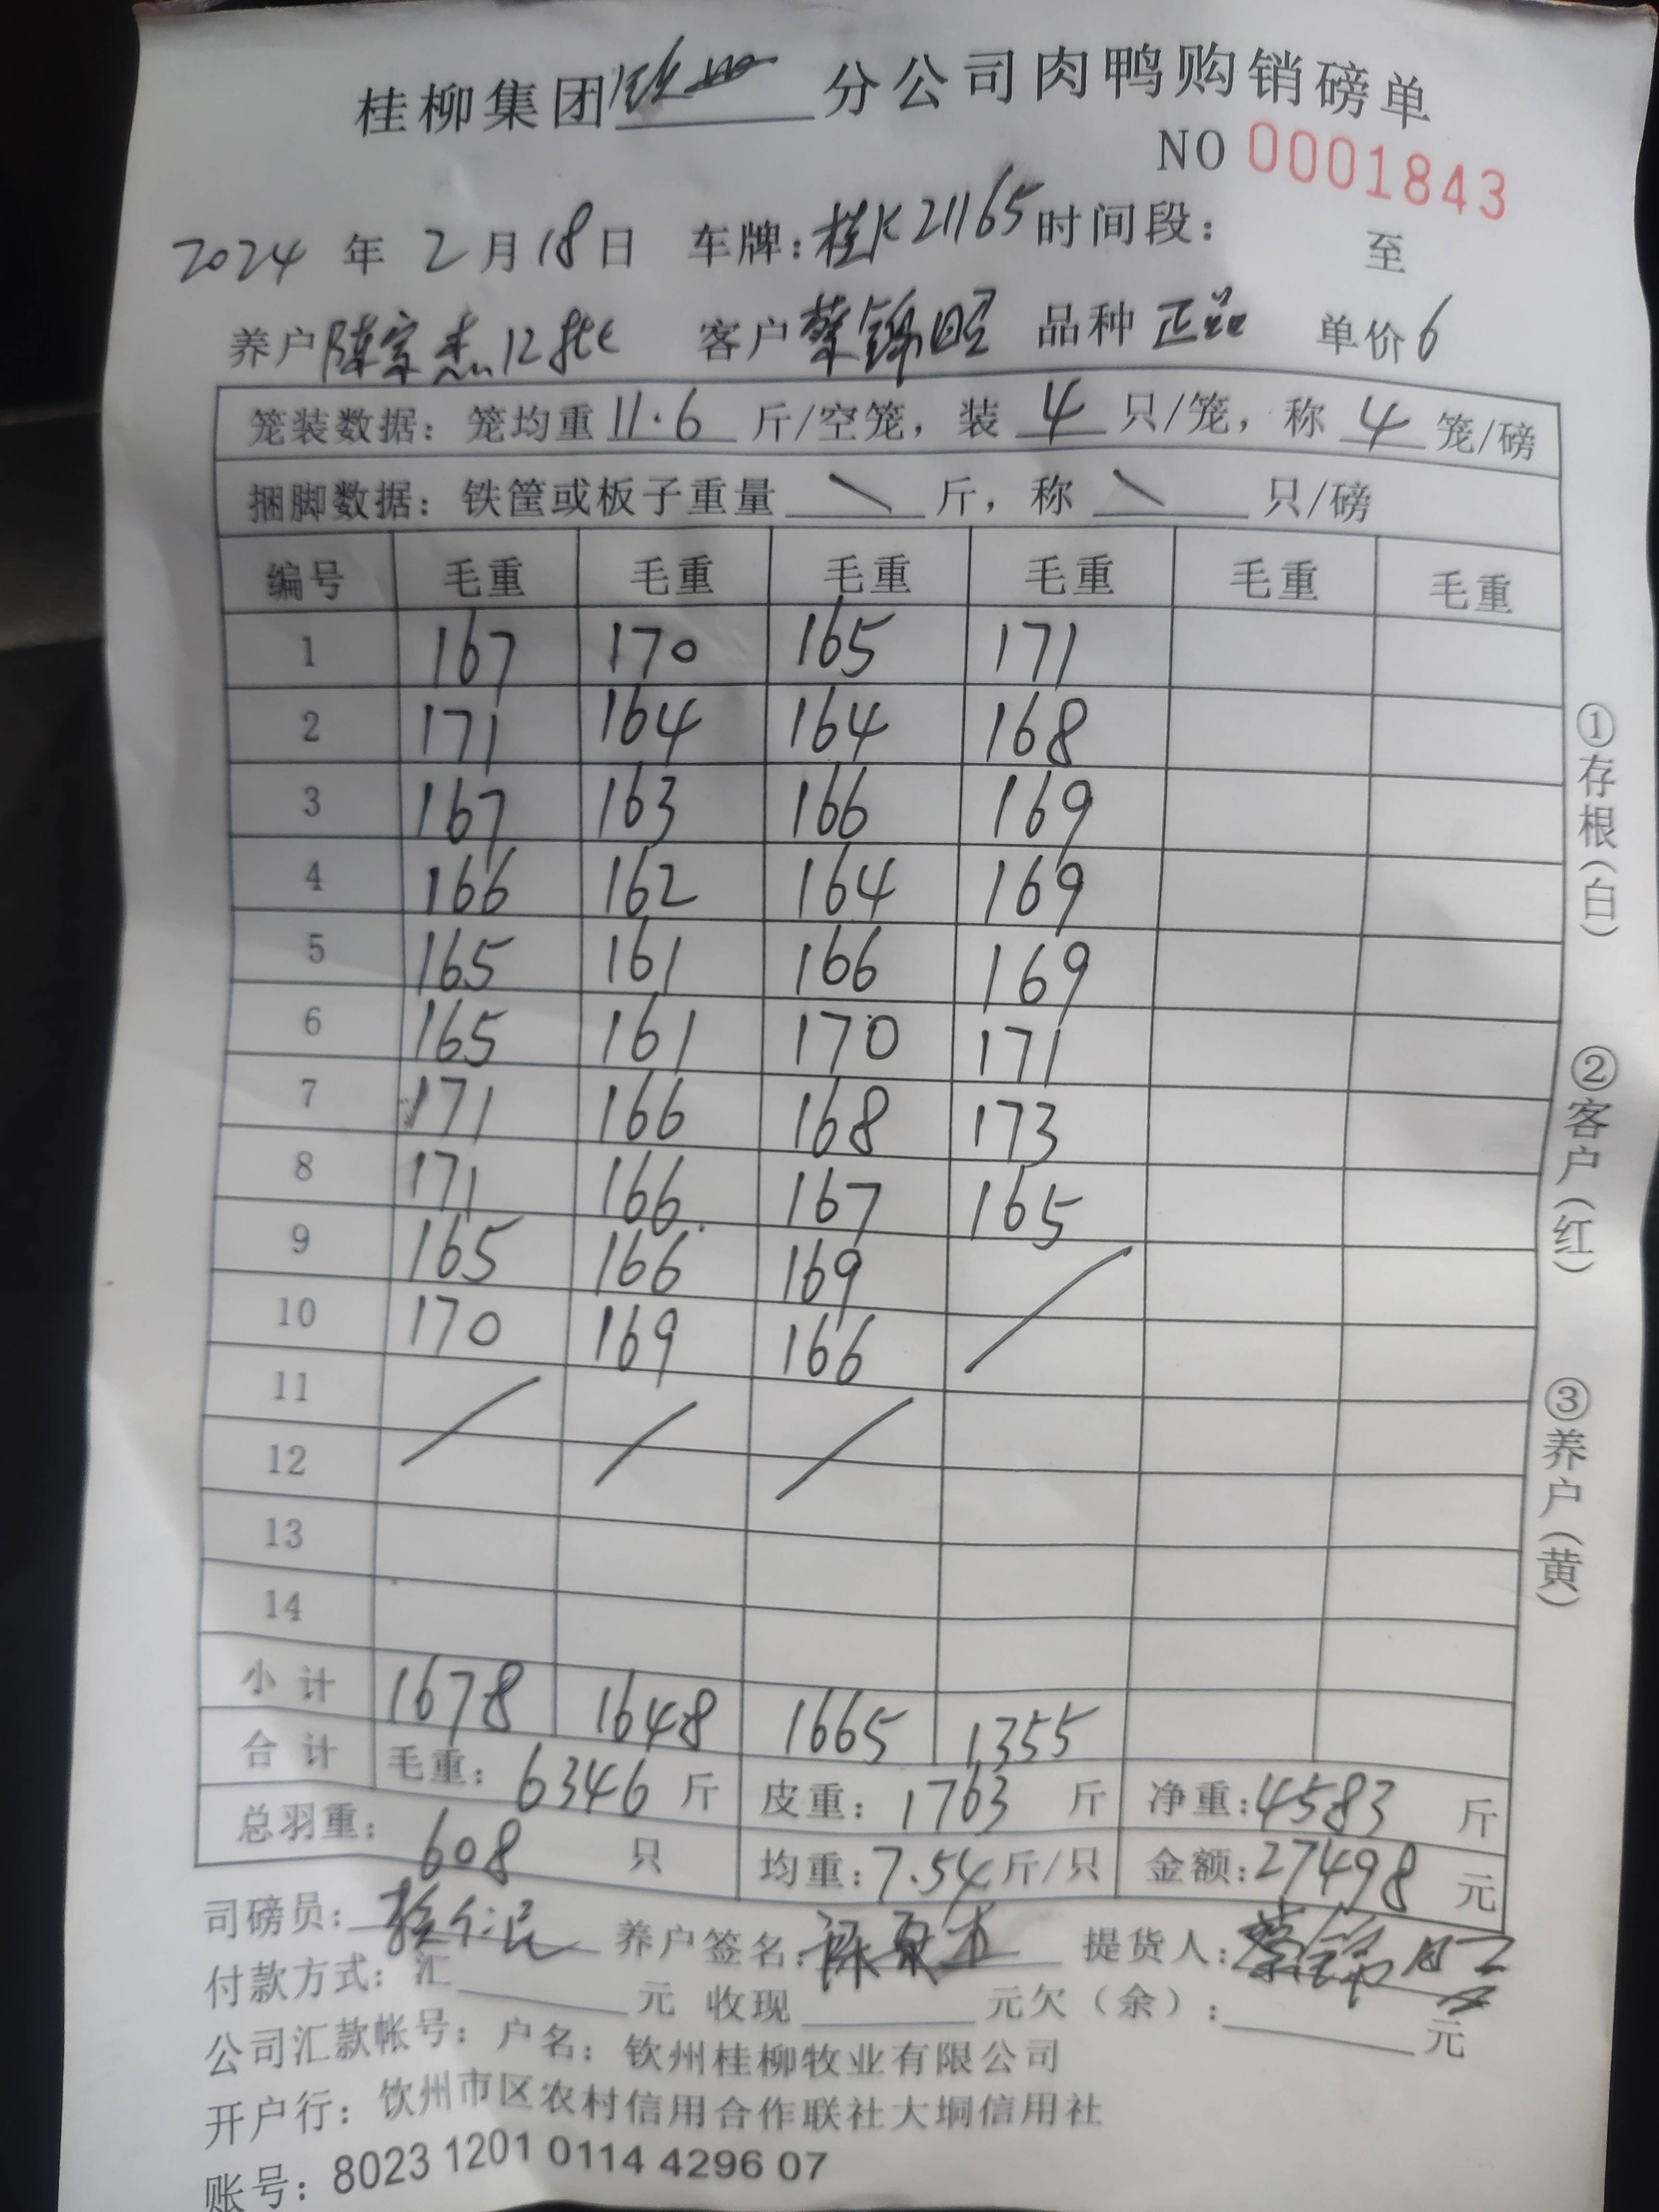 桂柳集团钦州分公司肉鸭购销磅单
NO 0001843
2024年2月18日 车牌:桂K21165 时间段: 至
养户陈家杰12批 客户蔡锦旺 品种正品 单价6
笼装数据: 笼均重11.6斤/空笼, 装4只/笼, 称4笼/磅
捆脚数据: 铁筐或板子重量\斤, 称\只/磅
编号 毛重 毛重 毛重 毛重 毛重 毛重
1 167 170 165 171
2 171 164 164 168
3 167 163 166 169
4 166 162 164 169
5 165 161 166 169
6 165 161 170 171
7 171 166 168 173
8 171 166 167 165
9 165 166 169
10 170 169 166
11
12
13
14
小计 1678 1648 1665 1355
合计 毛重: 6346斤 皮重: 1763斤 净重:4583斤
总羽重: 608只 均重:7.54斤/只 金额:27498元
司磅员: 养户签名: 陈家杰 提货人: 蔡锦旺
付款方式: 汇 元 收现 元欠(余): 元
公司汇款帐号: 户名: 钦州桂柳牧业有限公司
开户行: 钦州市区农村信用合作联社大垌信用社
账号: 8023 1201 0114 4296 07
①存根(白) ②客户(红) ③养户(黄)